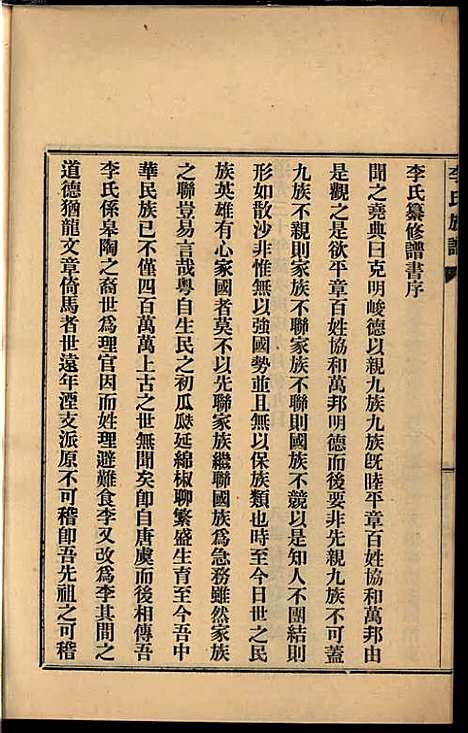 李氏族譜
李氏纂修譜書序
聞之堯典曰克明峻德以親九族九族旣睦平章百姓協和萬邦由
是觀之是欲平章百姓協和萬邦明德而後要非先親九族不可蓋
九族不親則家族不聯家族不聯則國族不競以是知人不團結則
形如散沙非惟無以強國勢並且無以保族類也時至今日世之民
族英雄有心家國者莫不以先聯家族繼聯國族爲急務雖然家族
之聯豈易言哉粵自生民之初瓜瓞延綿椒聊繁盛生育至今吾中
華民族已不僅四百萬萬上古之世無聞矣卽自唐虞而後相傳吾
李氏係皋陶之裔世爲理官因而姓理避難食李又改爲李其間之
道德猶龍文章倚馬者世遠年湮支派原不可稽卽吾先祖之可稽